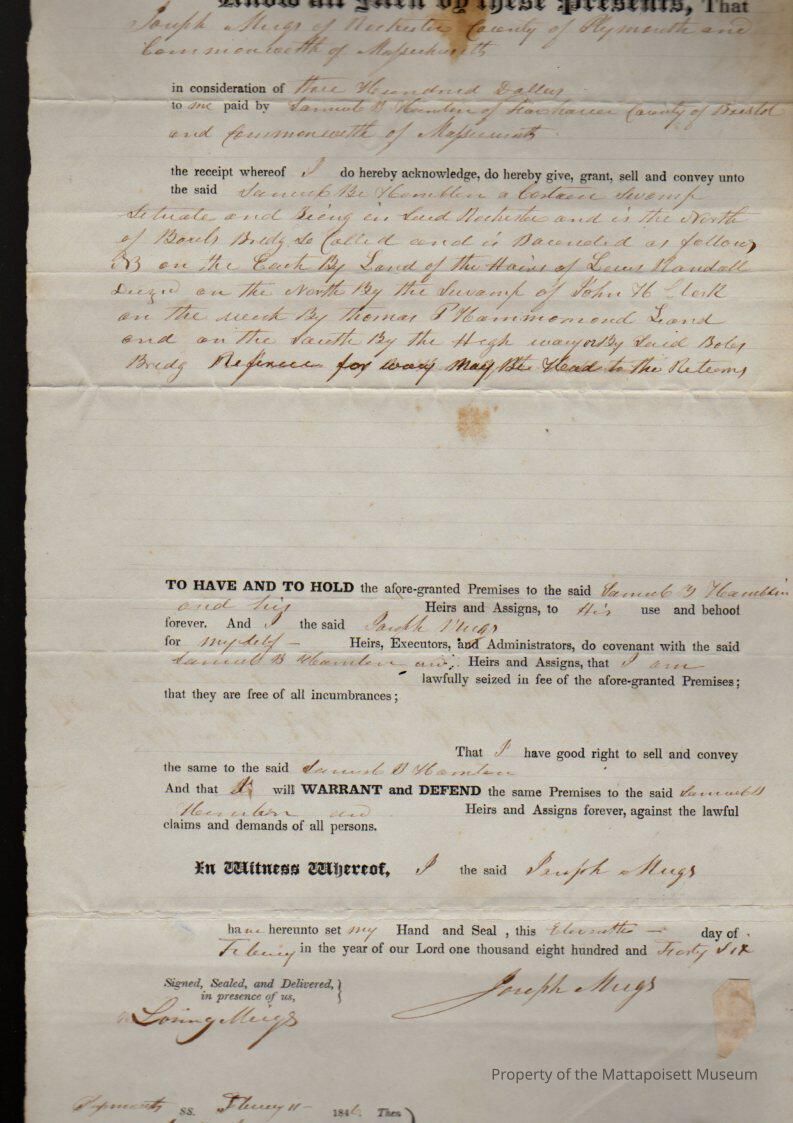 Know all Men by these Presents, That
Joseph Meigs of Rochester County of Plymouth and
Commonwelth of Massachusetts
in consideration of three Hundred Dollars
to me paid by Samuel B Hamlin of Fairhaven County of Bristol
and Commonwelth of Massachusetts
the receipt whereof I do hereby acknowledge, do hereby give, grant, sell and convey unto
the said Samuel B Hamblin a Certain Swamp
Situate and Being in Said Rochester and is the North
of Bowls Bredg So Called and is Bounded as follows
on the East By Land of the Hairs of Lewis Randall
on the North By the Swamp of John H Clark
on the west By Thomas P Hammomond Land
and on the South By the High way or By Said Boles
Bredg Refrence for way May Be Had to the Returns
TO HAVE AND TO HOLD the afore-granted Premises to the said Samuel B Hamblin
and his Heirs and Assigns, to His use and behoof
forever. And I the said Joseph Meigs
for myself – Heirs, Executors, and Administrators, do covenant with the said
Samuel B Hamlen and Heirs and Assigns, that I am
lawfully seized in fee of the afore-granted Premises;
that they are free of all incumbrances;
That I have good right to sell and convey
the same to the said Samuel B Hamlen
And that I will WARRANT and DEFEND the same Premises to the said Samuel B
Hamblen and Heirs and Assigns forever, against the lawful
claims and demands of all persons.
In Witness Whereof, I the said Joseph Meigs
have hereunto set my Hand and Seal, this Eleventh – day of
Febuery in the year of our Lord one thousand eight hundred and Forty Six
Signed, Sealed, and Delivered, }
in presence of us, }
Joseph Meigs
Loring Meigs
Property of the Mattapoisett Museum
Plymouth ss. Febuery 11 – 1846 Then )